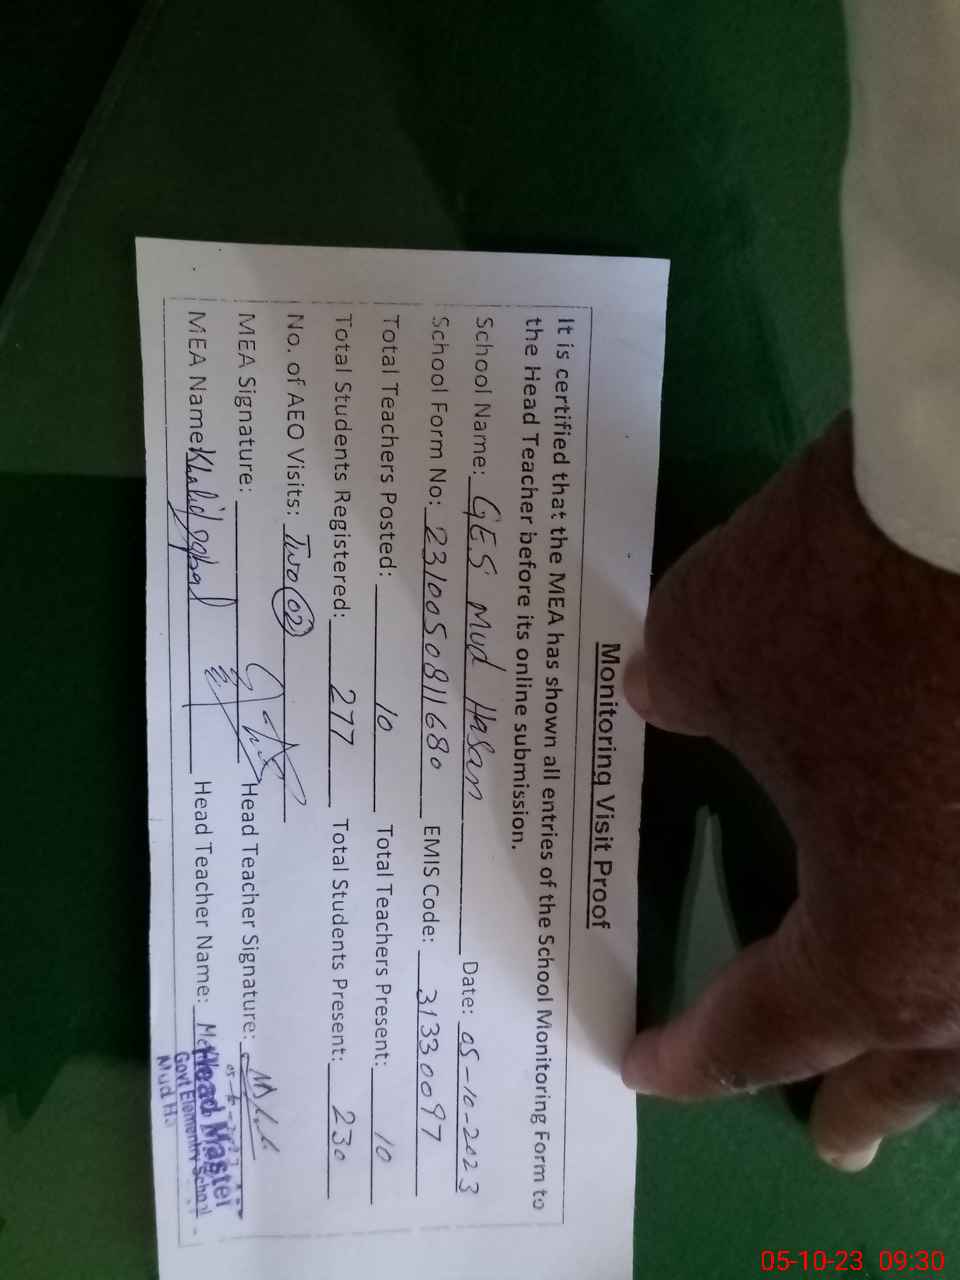 Monitoring Visit Proof
It is certified that the MEA has shown all entries of the School Monitoring Form to
the Head Teacher before its online submission.
School Name: GES Mud Hasan Date: 05-10-2023
School Form No: 2310050811680 EMIS Code: 31330097
Total Teachers Posted: 10 Total Teachers Present: 10
Total Students Registered: 277 Total Students Present: 230
No. of AEO Visits: Two 02
MEA Signature: Head Teacher Signature:
MEA Name: Khalid Iqbal Head Teacher Name:
Head Master
Govt Elementry School
Mud Ha
05-10-23 09:30